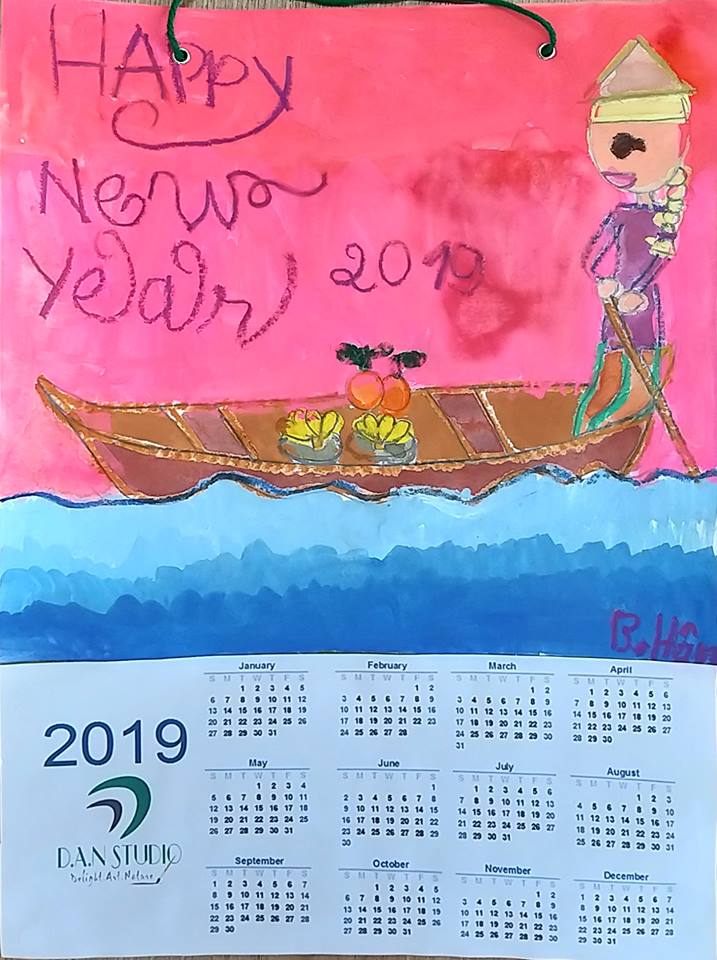 HAppy
New
Year 2019
B.Hân
2019
D.A.N STUDIO
Delight.Art.Nature
January
S M T W T F S
1 2 3 4 5
6 7 8 9 10 11 12
13 14 15 16 17 18 19
20 21 22 23 24 25 26
27 28 29 30 31
February
S M T W T F S
1 2
3 4 5 6 7 8 9
10 11 12 13 14 15 16
17 18 19 20 21 22 23
24 25 26 27 28
March
S M T W T F S
1 2
3 4 5 6 7 8 9
10 11 12 13 14 15 16
17 18 19 20 21 22 23
24 25 26 27 28 29 30
31
April
S M T W T F S
1 2 3 4 5 6
7 8 9 10 11 12 13
14 15 16 17 18 19 20
21 22 23 24 25 26 27
28 29 30
May
S M T W T F S
1 2 3 4
5 6 7 8 9 10 11
12 13 14 15 16 17 18
19 20 21 22 23 24 25
26 27 28 29 30 31
June
S M T W T F S
1
2 3 4 5 6 7 8
9 10 11 12 13 14 15
16 17 18 19 20 21 22
23 24 25 26 27 28 29
30
July
S M T W T F S
1 2 3 4 5 6
7 8 9 10 11 12 13
14 15 16 17 18 19 20
21 22 23 24 25 26 27
28 29 30 31
August
S M T W T F S
1 2 3
4 5 6 7 8 9 10
11 12 13 14 15 16 17
18 19 20 21 22 23 24
25 26 27 28 29 30 31
September
S M T W T F S
1 2 3 4 5 6 7
8 9 10 11 12 13 14
15 16 17 18 19 20 21
22 23 24 25 26 27 28
29 30
October
S M T W T F S
1 2 3 4 5
6 7 8 9 10 11 12
13 14 15 16 17 18 19
20 21 22 23 24 25 26
27 28 29 30 31
November
S M T W T F S
1 2
3 4 5 6 7 8 9
10 11 12 13 14 15 16
17 18 19 20 21 22 23
24 25 26 27 28 29 30
December
S M T W T F S
1 2 3 4 5 6 7
8 9 10 11 12 13 14
15 16 17 18 19 20 21
22 23 24 25 26 27 28
29 30 31